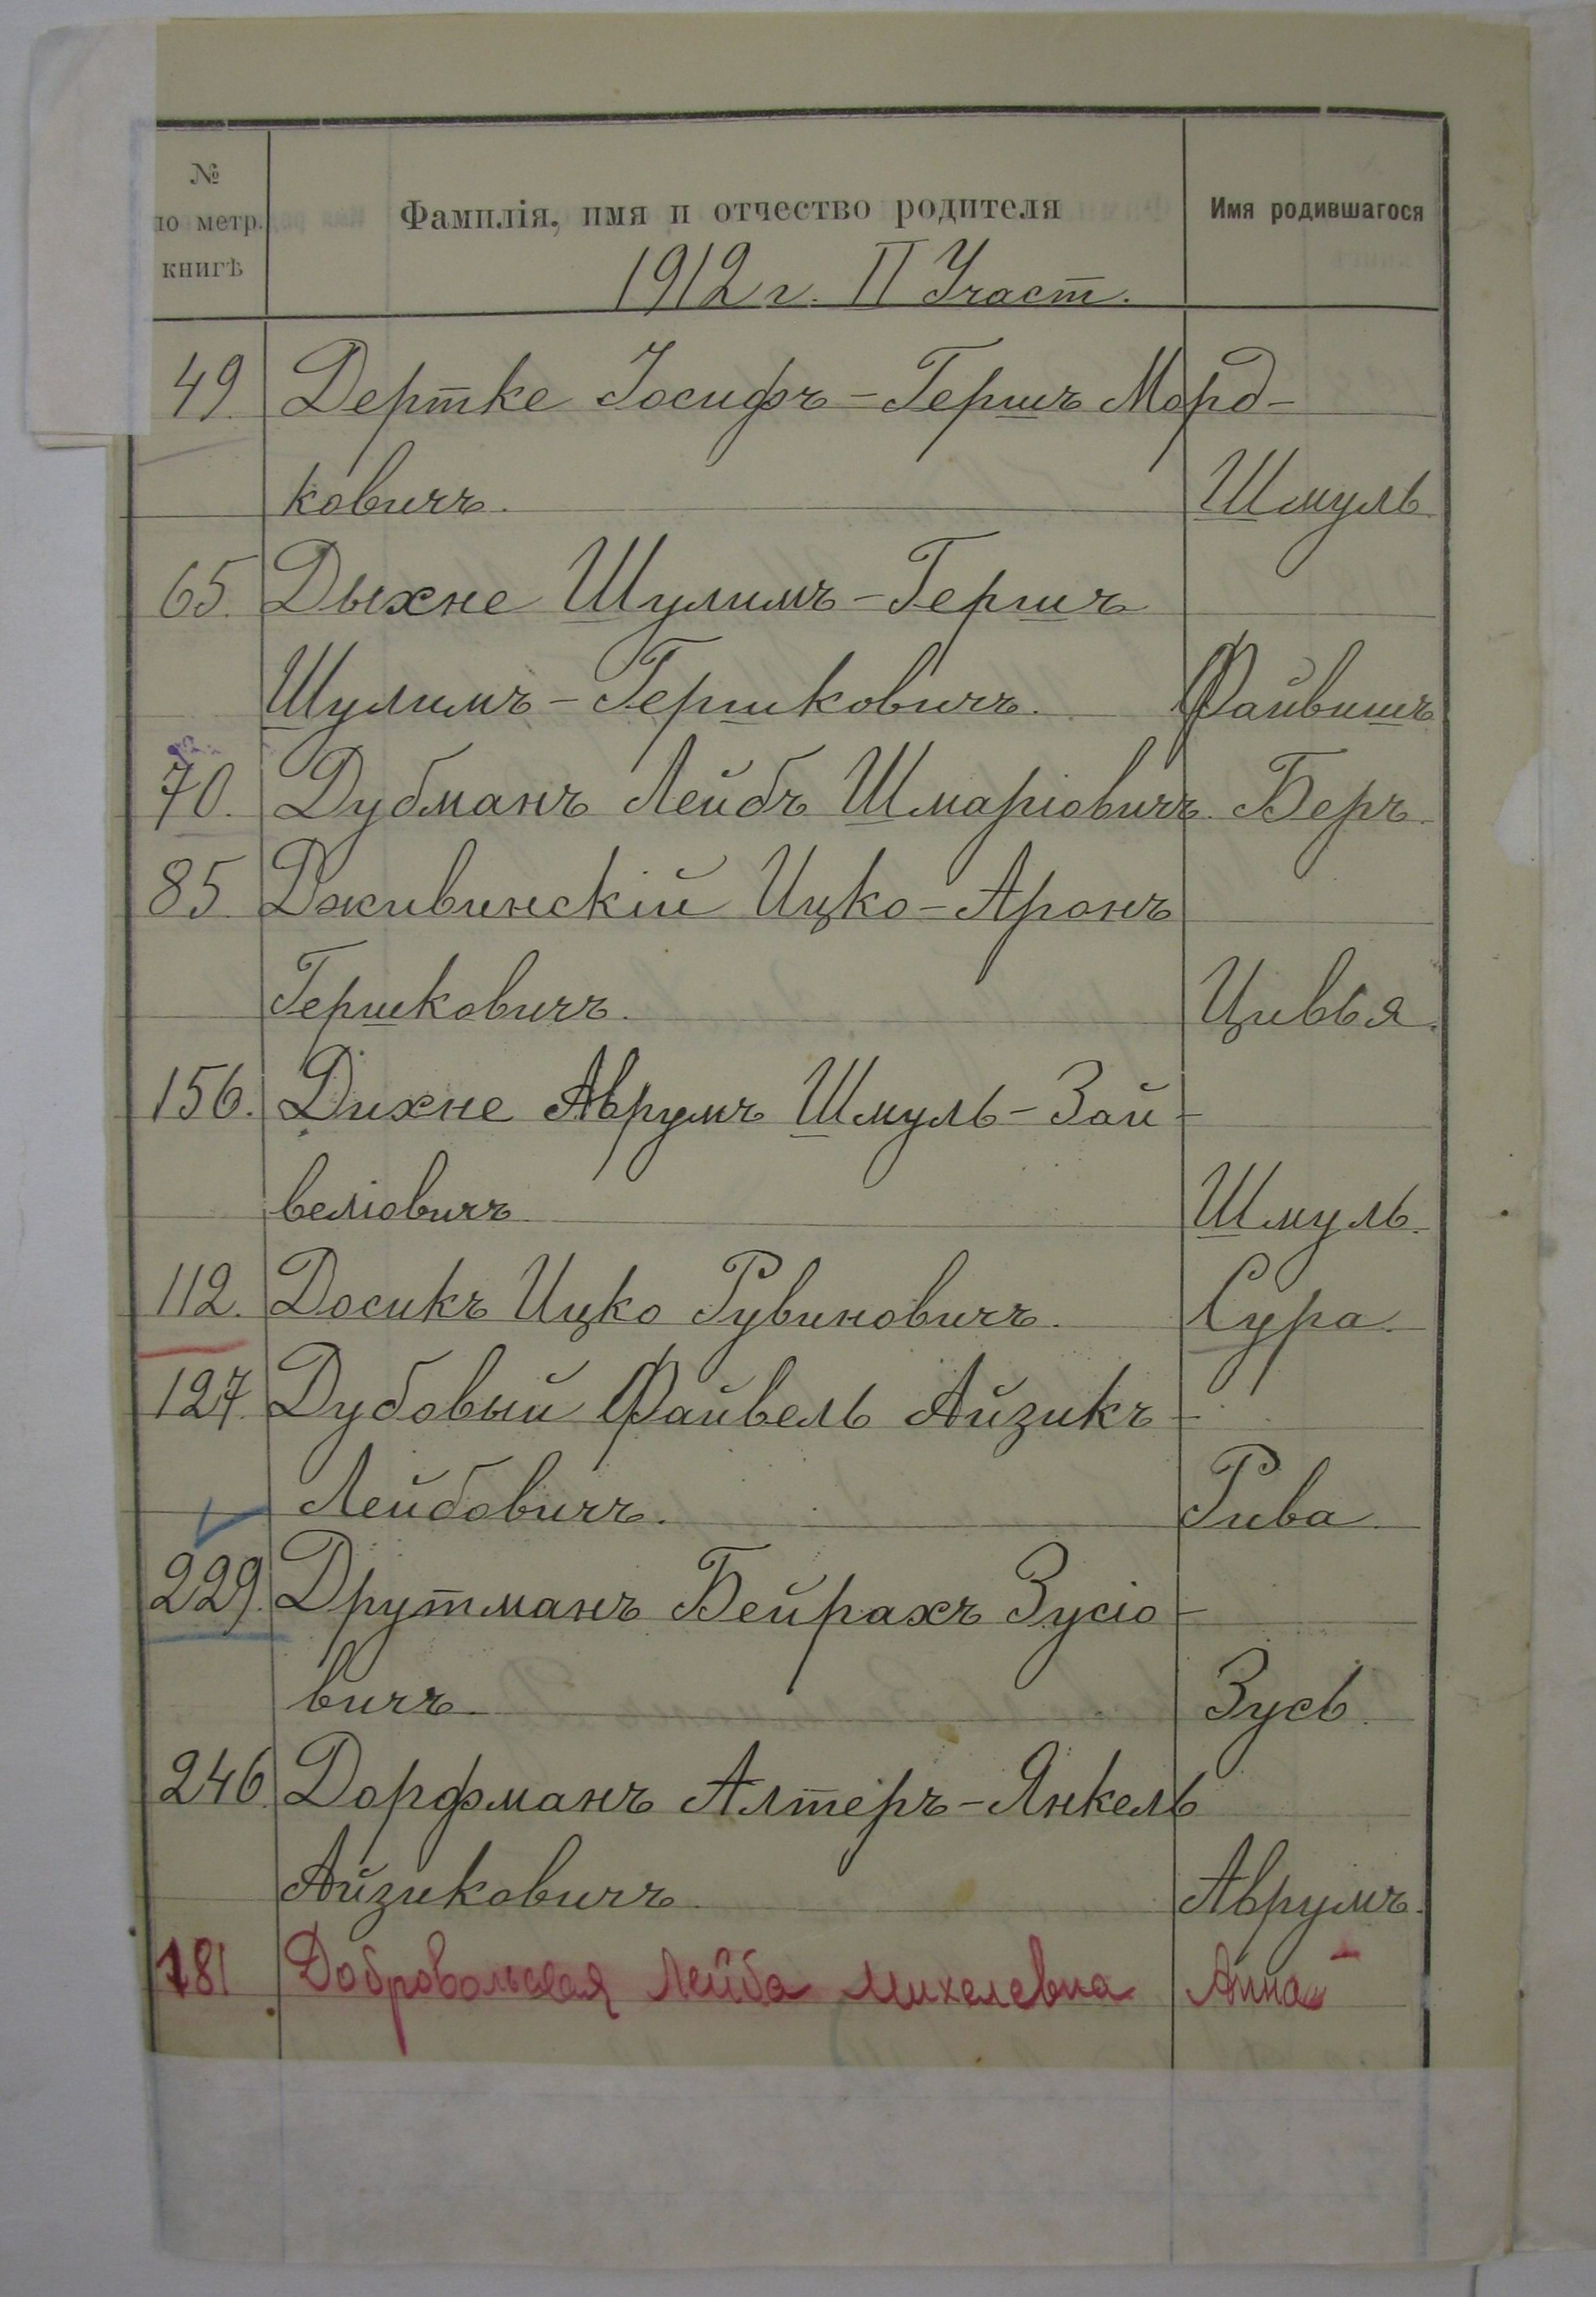 №
по метр.
книгѣ
Фамилія, имя и отчество родителя
Имя родившагося
1912 г. II Участ.
49. Дертке Іосифъ-Гершъ Морд-
ковичъ. Шмуль.
65. Дыхне Шулимъ-Гершъ
Шулимъ-Гершковичъ. Файвишъ
70. Дубманъ Лейбъ Шмаріовичъ. Беръ.
85. Дживинскій Ицко-Аронъ
Гершковичъ. Цивья.
156. Дихне Аврумъ Шмуль-Зай-
веліовичъ Шмуль.
112. Досикъ Ицко Рувиновичъ. Сура.
127. Дубовый Файвель Айзикъ-
Лейбовичъ. Рива
229. Друтманъ Бейрахъ Зусіо-
вичъ. Зусь.
246. Дорфманъ Алтеръ-Янкель
Айзиковичъ Аврумъ.
181 Добровольская Лейба Михелевна Анна